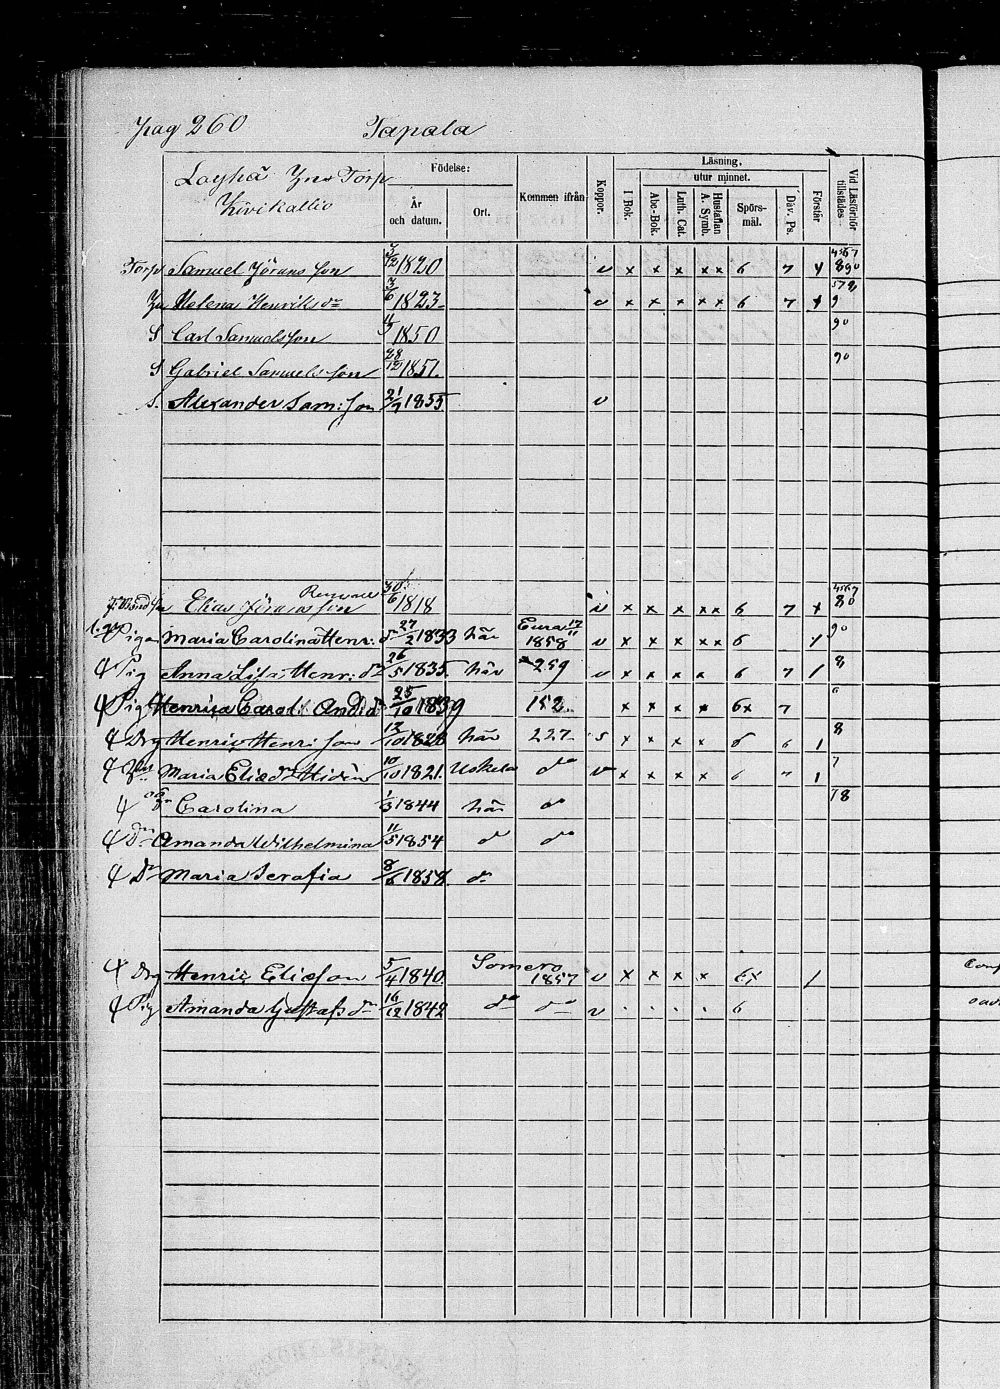 pag 260 Tapala
Torp
Kivikallio
Födelse:
År och datum.
Ort.
Kommen ifrån
Koppor.
Läsning,
utur minnet.
I Bok.
Abc-Bok.
Luth. Cat.
Hustaflan A. Symb.
Spörsmål.
Dav. Ps.
Förstår
Vid Läsförhör tillstädes
Torp Samuel Jörans son 3/12 1820 v x x x x x 6 7
Helena Henriks dr 3/6 1823 v x x x x x 6 7 9
S Carl Samuelsson 1850 90
S Gabriel Samuels son 28/12 1851. 90
S. Alexander Sam: son 21/9 1855 v
Elias Jöransson 30/6 1818 x x x x x 6 7 80
Pigan Maria Carolina Henr: d 27/2 1833 här Eura 1858 v x x x x x 6 90
Pig Anna Lisa Henr: dr 26/5 1835. här 259 v x x x x 6 7 1 8
Pig Henrica Carol: And: d 25/10 1839 152. x x x x 6x 7
Drg Henric Henri: son 12/10 1828 här 227. s x x x x 6 6 1 8
Maria Eliæ dr Widén 10/10 1821. Uskela do v x x x x 6 7 1 7
Carolina 1/3 1844 här do 78
Dr Amanda Wilhelmina 11/5 1854 do do
Dr Maria Serafia 8/6 1858. do
Drg Henric Eliæson 5/4 1840. Somero 1857 v x x x x 6x /
Pig Amanda Gustafs dr 16/12 1842 do do v 6